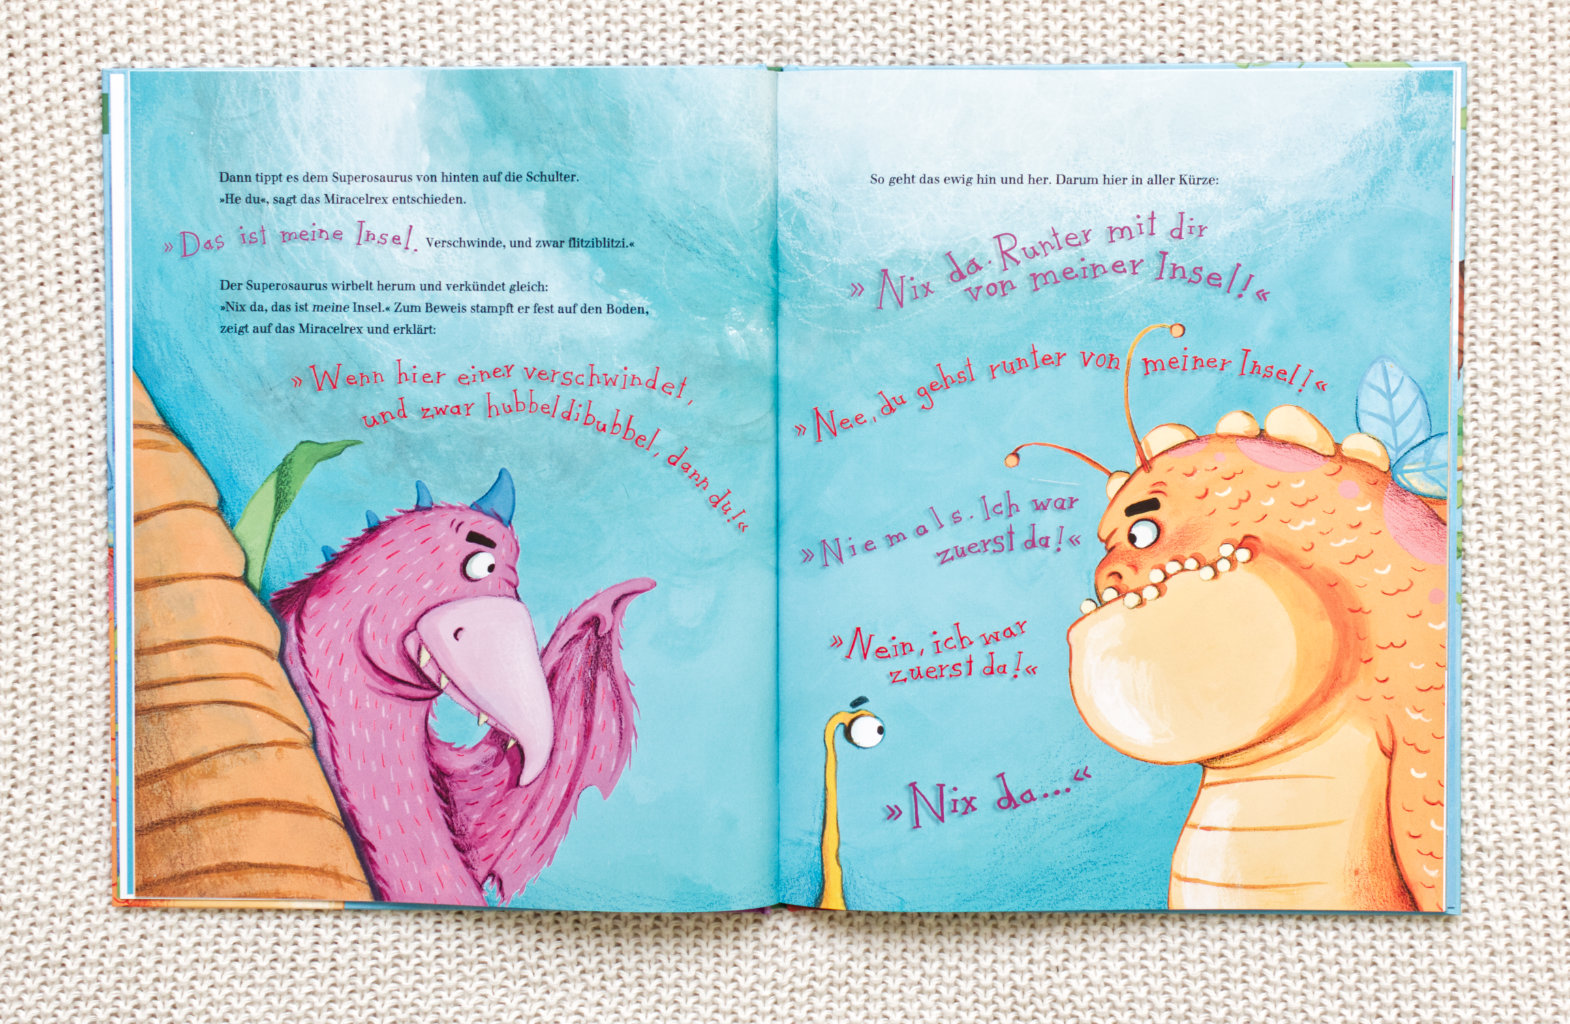 Dann tippt es dem Superosaurus von hinten auf die Schulter.
»He du«, sagt das Miracelrex entschieden.
»Das ist meine Insel. Verschwinde, und zwar flitziblitzi.«
Der Superosaurus wirbelt herum und verkündet gleich:
»Nix da, das ist meine Insel.« Zum Beweis stampft er fest auf den Boden,
zeigt auf das Miracelrex und erklärt:
»Wenn hier einer verschwindet,
und zwar hubbeldibubbel, dann du!«
So geht das ewig hin und her. Darum hier in aller Kürze:
»Nix da. Runter mit dir
von meiner Insel!«
»Nee, du gehst runter von meiner Insel!«
»Niemals. Ich war
zuerst da!«
»Nein, ich war
zuerst da!«
»Nix da...«